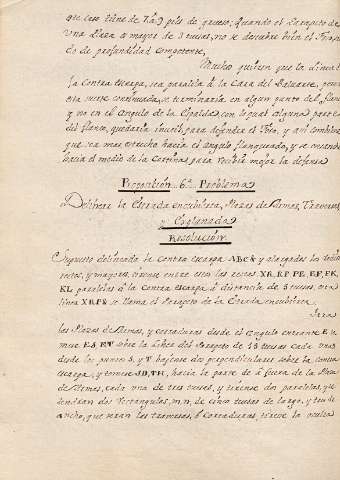 que esse tiene de 12 a 15 piés de grueso, quando el Parapeto de
una Plaza es mayor de 3 tuesas, no se descubre bien el Foso
de profundidad competente,
Muchos quieren que la linea de
la Contra Escarpa, sea paralela à la Cara del Baluarte, pero
esta suerte continuada, se terminaria en algun punto del flanco
y no en el Angulo de la Espalda, con lo qual alguna parte
del flanco, quedaria inutil para defender el Foso, y asi combiene
que sea mas estrecho hacia el angulo flanqueado, y se ensanche
hacia el medio de la Cortina para recibir mejor la defensa
Proposición 6ª Problema
Delinear la Estrada encubierta, Plazas de Armas, Traveses,
y Explanada
Resolución
Supuesto delineada la Contra Escarpa ABC& y alargados los lados
rectos, y mayores, tirense entre ellos las rectas XR, RP, PE, EF, FK,
KL paralelas à la Contra Escarpa à distancia de 5 tuesas, esta
linea XRP& se llama el Parapeto de la Estrada encubierta.
Para
las Plazas de Armas, y cortaduras desde el angulo entrante E
tomese ES, ET sobre la linea del Parapeto de 15 tuesas cada una
desde los puntos S, y T, bajense dos perpendiculares sobre la contra
escarpa, y tomese SD, TH, hacia la parte de à fuera de la Plaza
de Armas, cada una de tres tuesas, y tirense dos paralelas, que
tendran dos Rectangulos, m, n, de cinco tuesas de largo, y tres de
ancho, que seran los traveses, ò Cortaduras, tirese la oculta